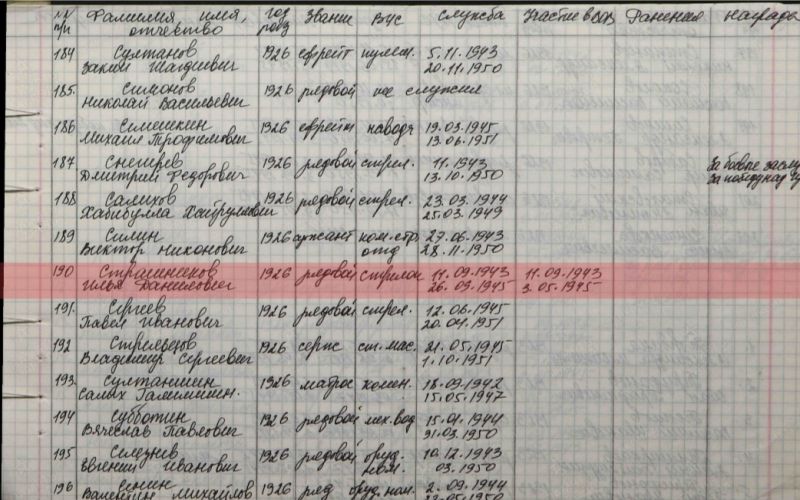 № Фамилия, имя, год Звание ВУС Служба Участие в ВОВ Ранения Награды
п/п отчество рожд
184 Султанов 1926 ефрейт пулем. 5.11.1943
20.11.1950
185. Симонов 1926 рядовой не служил
Николай Васильевич
186 Семешкин 1926 ефрейтн наводч 19.03.1945
Михаил Трофимович 13.06.1951
187 Снегирев 1926 рядовой стрел. 11.1943 За боевые заслу
Дмитрий Федорович 13.10.1950 За победу над
188 Салихов 1926 рядовой стрел. 23.03.1944
Хабибулла Хайруллович 25.03.1949
189 Силин 1926 сержант ком.стр. 27.06.1943
Виктор Никонович отд 28.11.1950
190 1926 рядовой стрелок 11.09.1943 11.09.1943
Илья Данилович 26.09.1945 3.05.1945
191. Сергеев 1926 рядовой стрел. 12.06.1945
Павел Иванович 20.04.1951
192 Стрельцов 1926 серж ст.мас. 21.05.1945
Владимир Сергеевич 1.10.1951
193. 1926 матрос комен. 18.09.1942
Салых 15.05.1947
194 Субботин 1926 рядовой мех.вод 15.04.1944
Вячеслав Павлович 31.03.1950
195 Селезнев 1926 рядовой оруд. 10.12.1943
Евгений Иванович ном. 03.1950
196 Сенин 1926 ряд оруд.ном. 2.09.1944
Валентин Михайлов